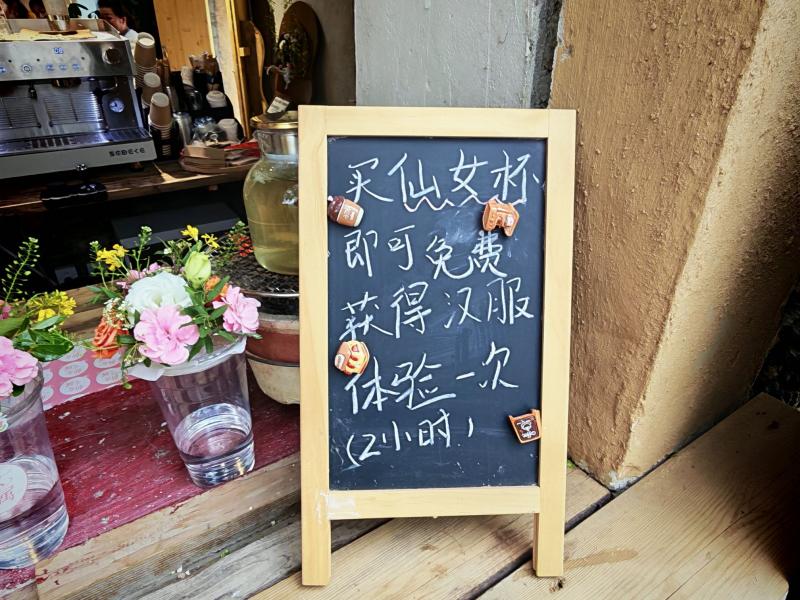 买仙女杯
即可免费
获得汉服
体验一次
(2小时)